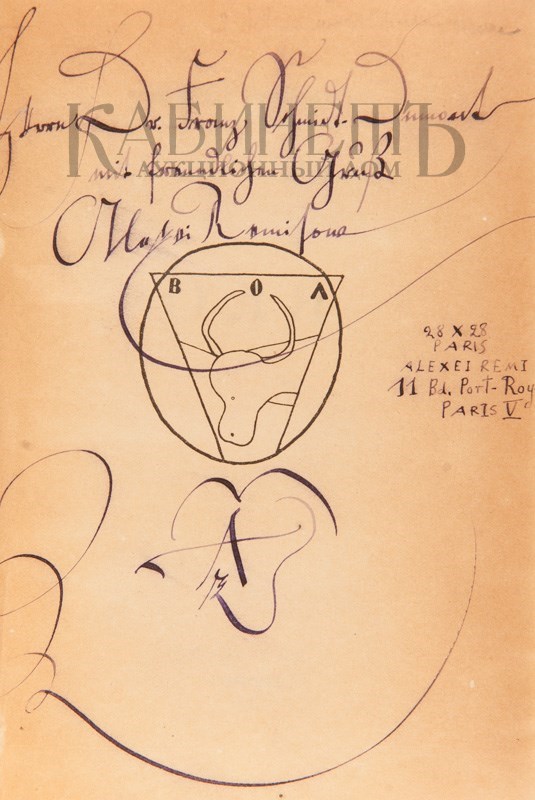 Herrn Dr. Franz Schmidt-Dumont
КАБИНЕТЪ
АУКЦИОННЫЙ ДОМ
mit freundlichem Gruß
Alexei Remisow
В О Л
28 X 28
PARIS
ALEXEI REMI
11 Bd. Port-Roy
PARIS V